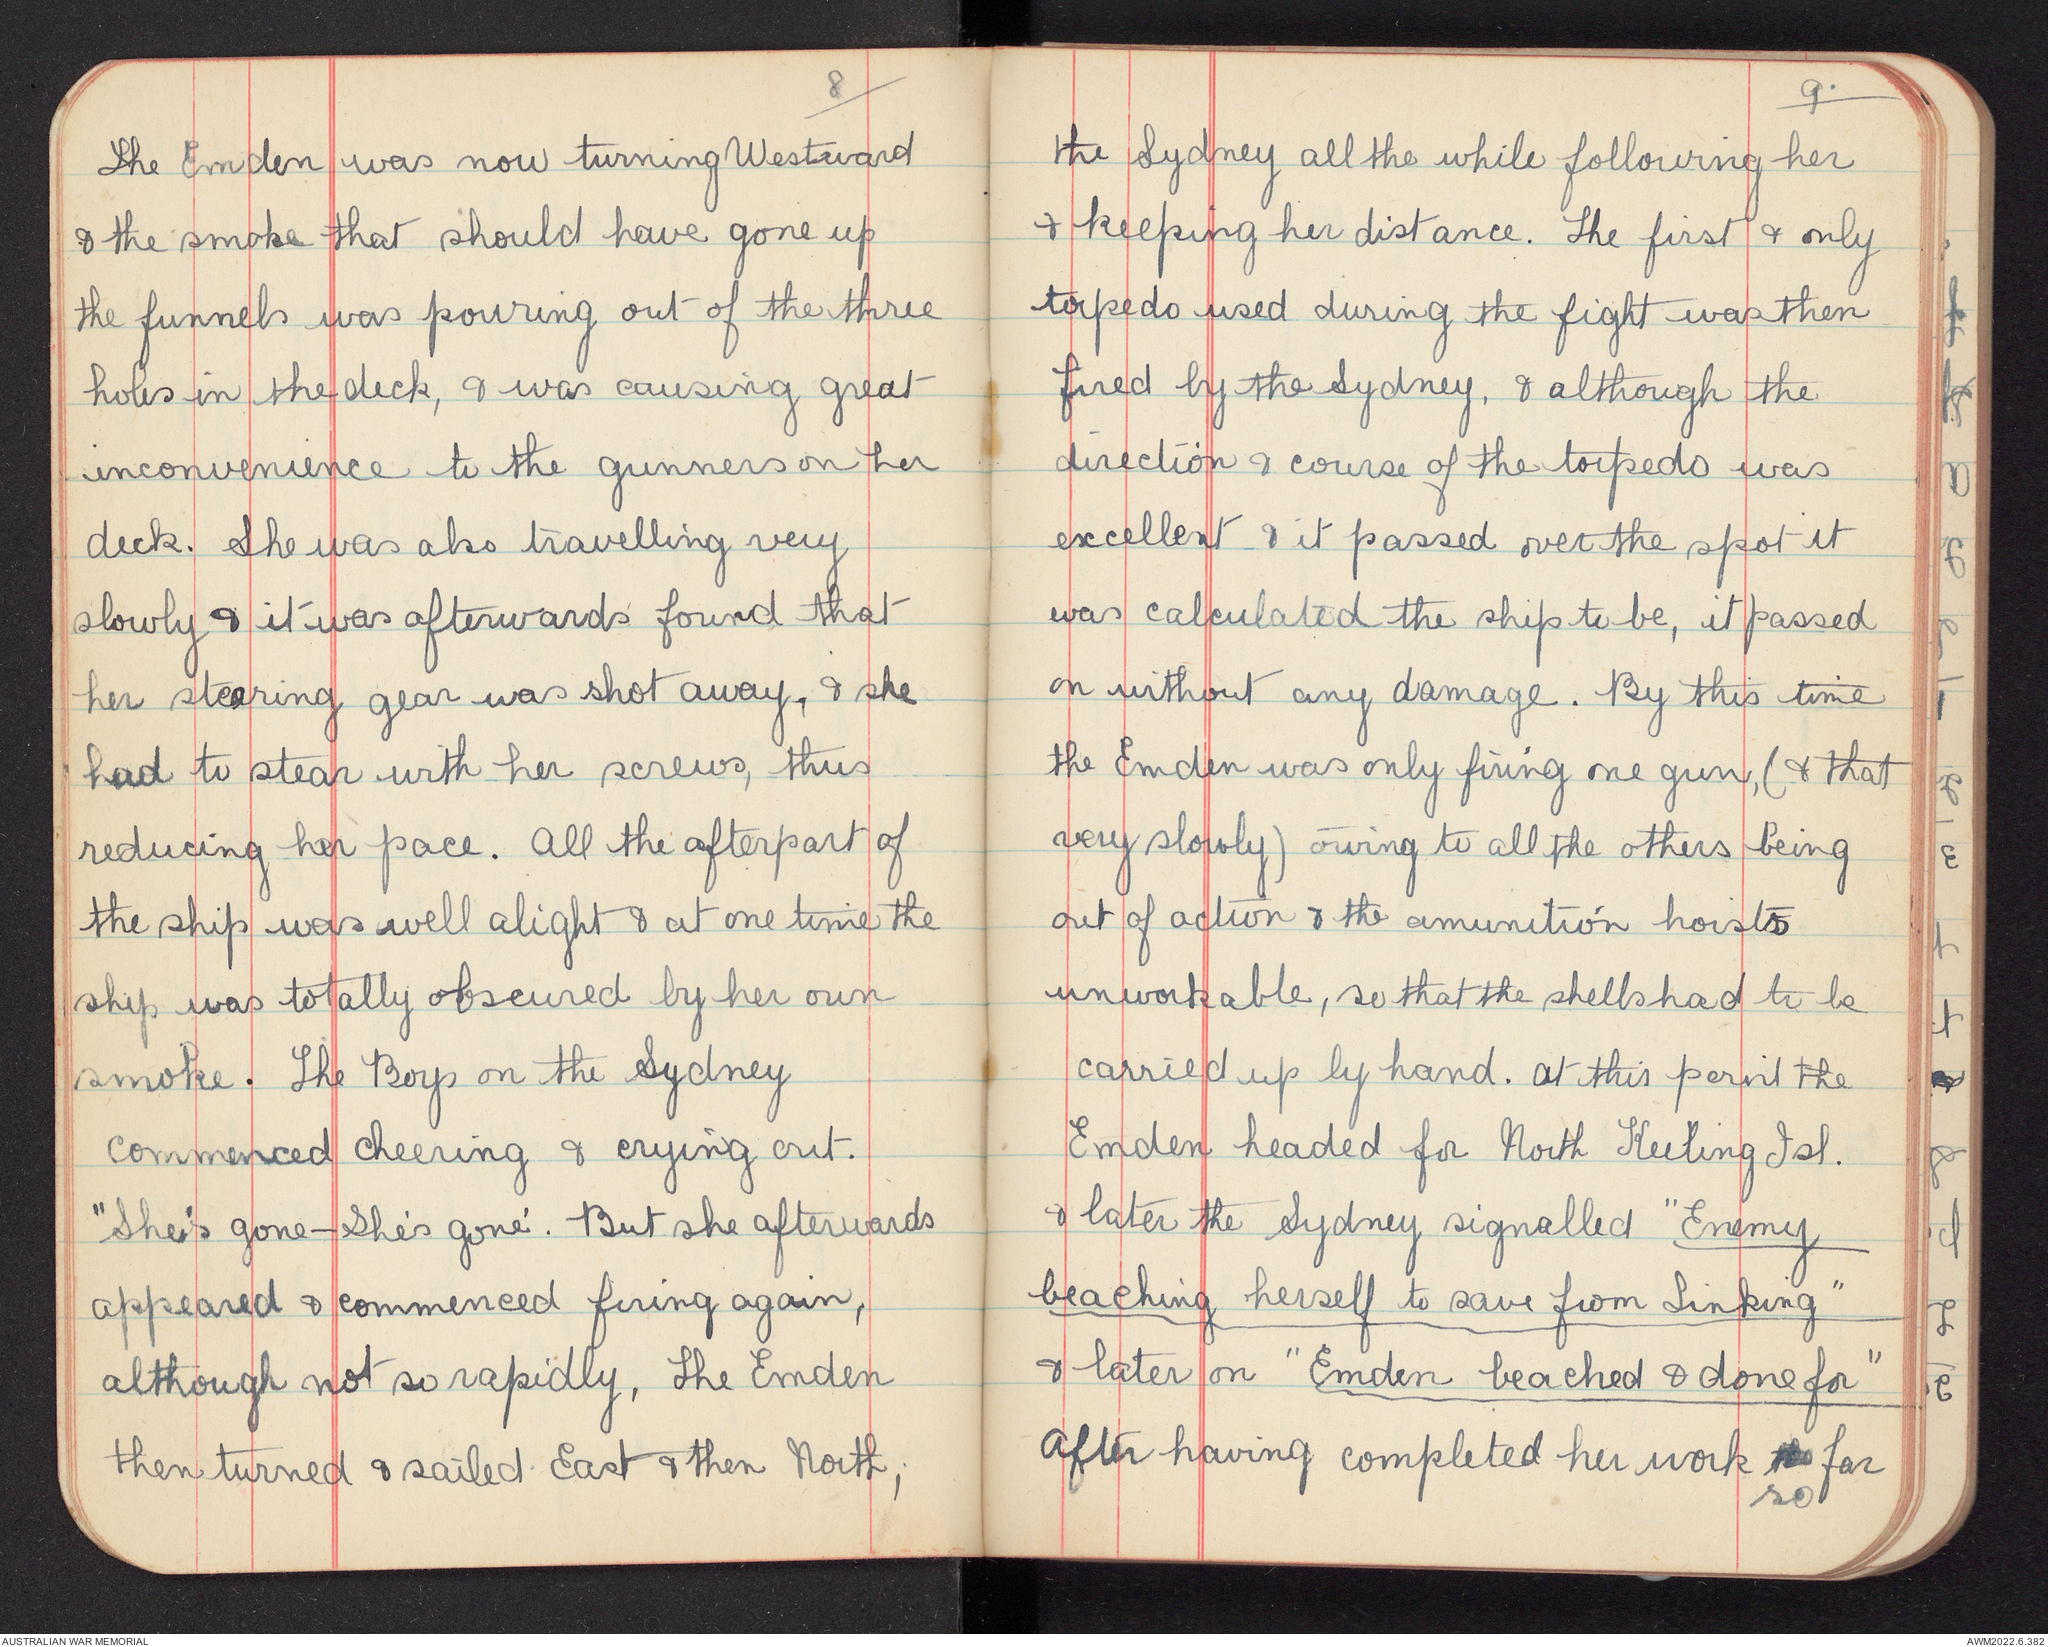 8
The Emden was now turning Westward
& the smoke that should have gone up
the funnels was pouring out of the three
holes in the deck, & was causing great
inconvenience to the gunners on her
deck. She was also travelling very
slowly & it was afterwards found that
her stearing gear was shot away, & she
had to stear with her screws, thus
reducing her pace. All the afterpart of
the ship was well alight & at one time the
ship was totally obscured by her own
smoke. The Boys on the Sydney
commenced cheering & crying out.
"She's gone — She's gone". But she afterwards
appeared & commenced firing again,
although not so rapidly, The Emden
then turned & sailed East & then North,
9.
the Sydney all the while following her
& keeping her distance. The first & only
torpedo used during the fight was then
fired by the Sydney, & although the
direction & course of the torpedo was
excellent & it passed over the spot it
was calculated the ship to be, it passed
on without any damage. By this time
the Emden was only firing one gun, (& that
very slowly) owing to all the others being
out of action & the amunition hoists
unworkable, so that the shells had to be
carried up by hand. At this point the
Emden headed for North Keeling Isl.
& later the Sydney signalled "Enemy
beaching herself to save from Sinking"
& later on "Emden beached & done for"
After having completed her work so far
AUSTRALIAN WAR MEMORIAL
AWM2022.6.382